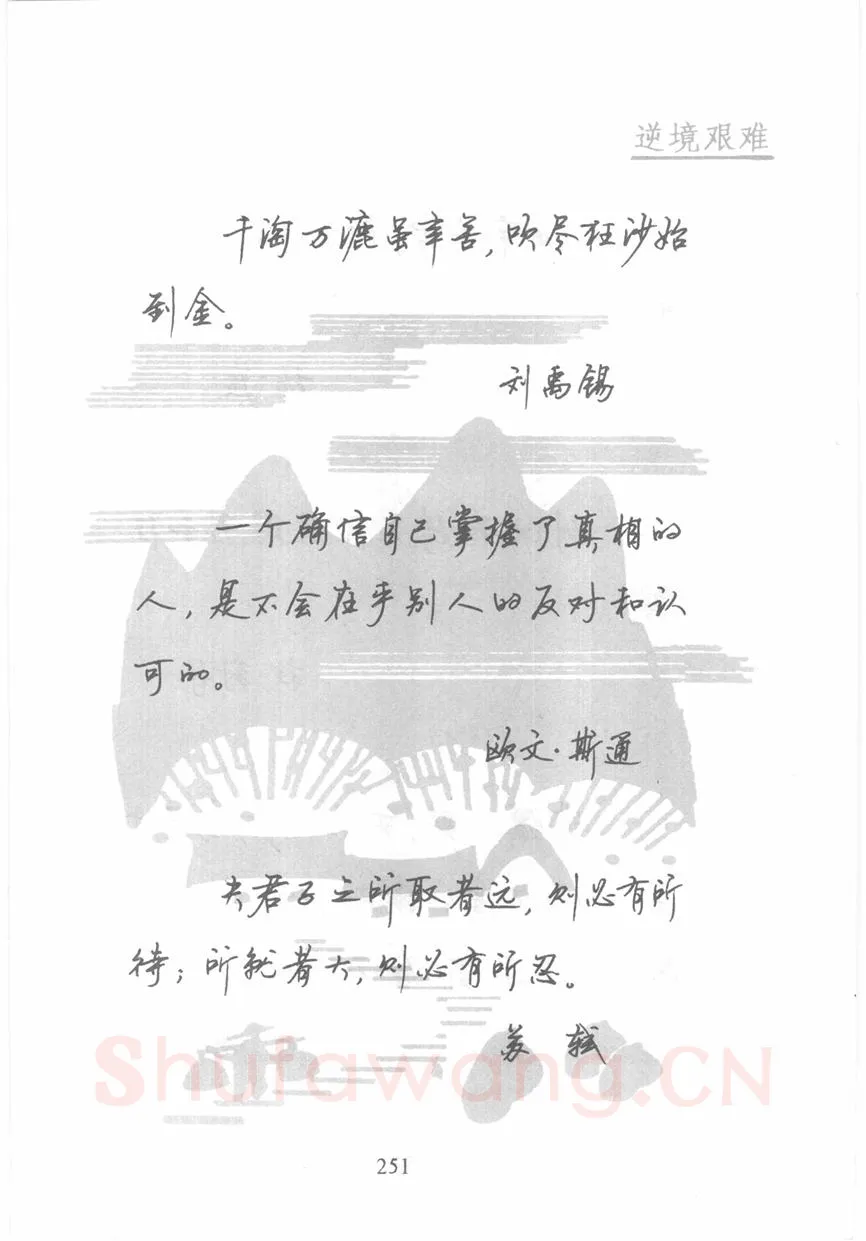 逆境艰难
千淘万漉虽辛苦，吹尽狂沙始
到金。
刘禹锡
一个确信自己掌握了真相的
人，是不会在乎别人的反对和认
可的。
欧文·斯通
夫君子之所取者远，则必有所
待；所就者大，则必有所忍。
苏 轼
Shufawang.CN
251